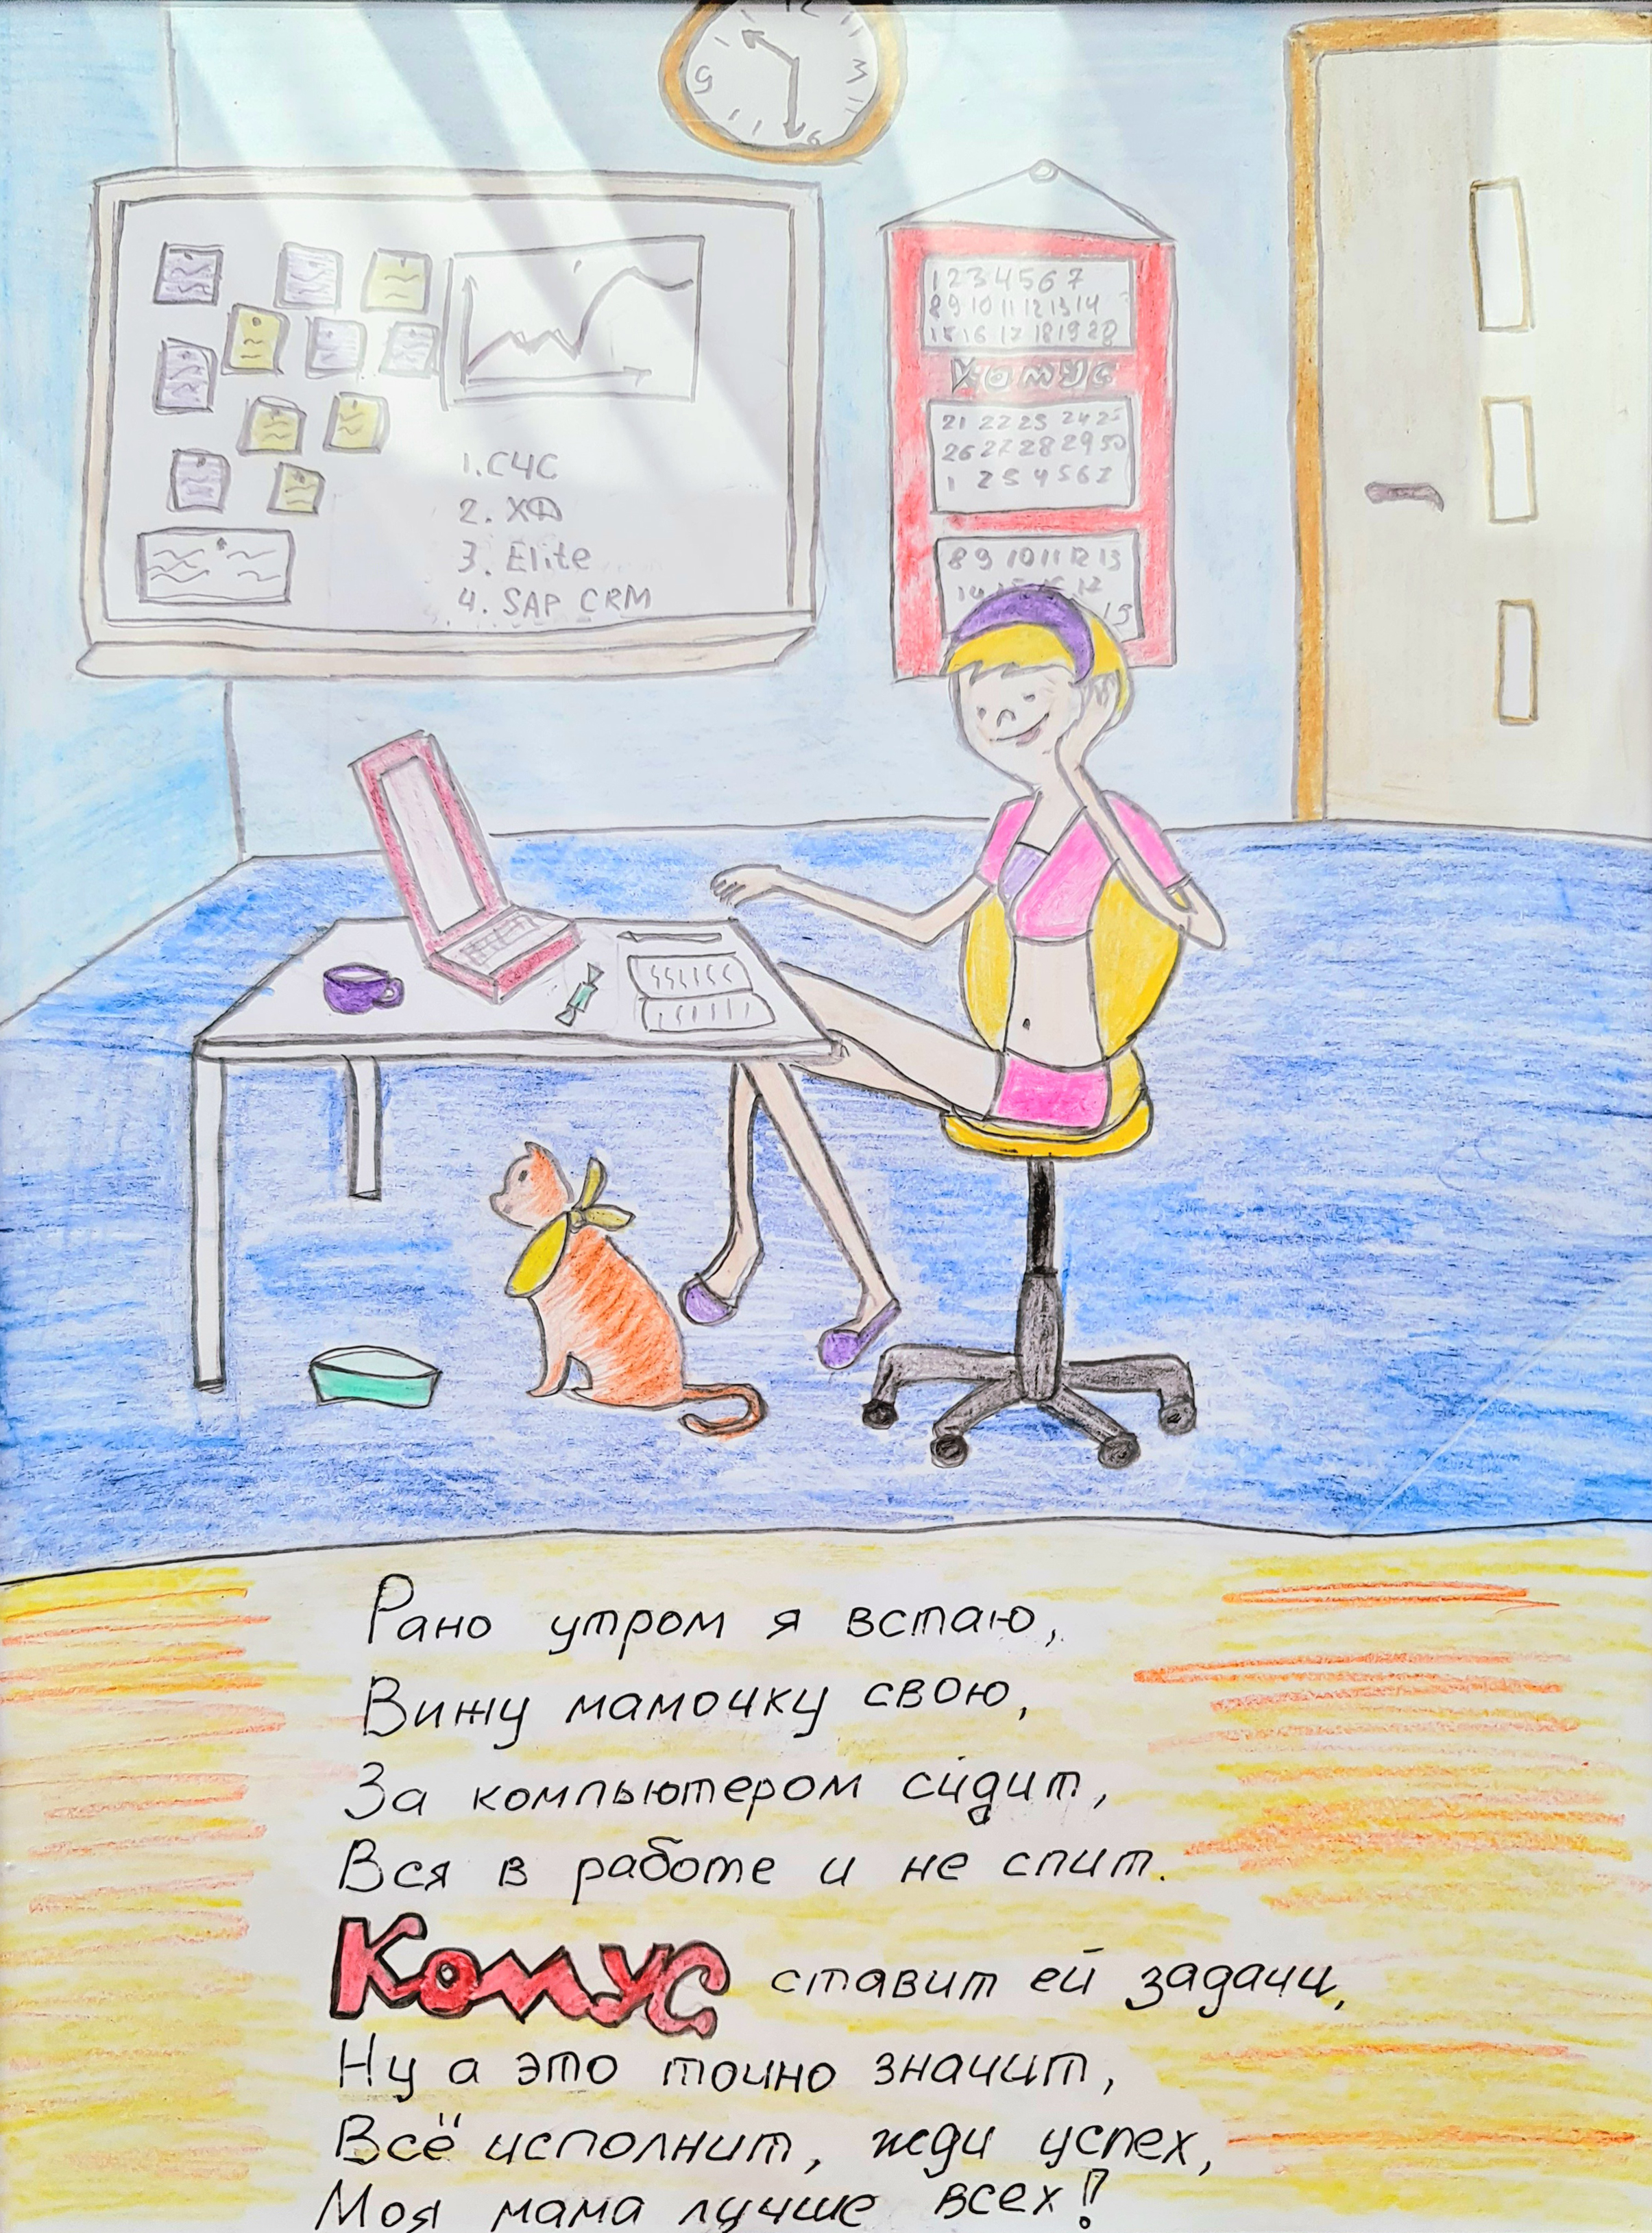 12
3
6
9
1 2 3 4 5 6 7
8 9 10 11 12 13 14
15 16 17 18 19 20
Комус
21 22 23 24 25
26 27 28 29 30
1 2 3 4 5 6 7
8 9 10 11 12 13
1. СЧС
2. ХД
3. Elite
4. SAP CRM
Рано утром я встаю,
Вижу мамочку свою,
За компьютером сидит,
Вся в работе и не спит.
Комус ставит ей задачи,
Ну а это точно значит,
Всё исполнит, жди успех,
Моя мама лучше всех!